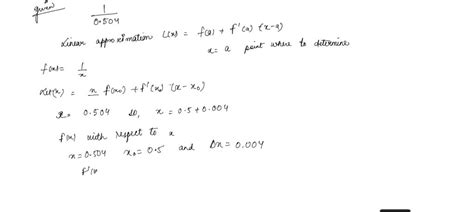 given
1/0.504
Linear approximation L(x) = f(a) + f'(a) (x-a)
x = a point where to determine
f(x) = 1/x
Let(x) = n f(x₀) + f'(x₀) (x - x₀)
x = 0.504 so, x = 0.5 + 0.004
f(x) with respect to x
x = 0.504 x₀ = 0.5 and Δx = 0.004
f'(x